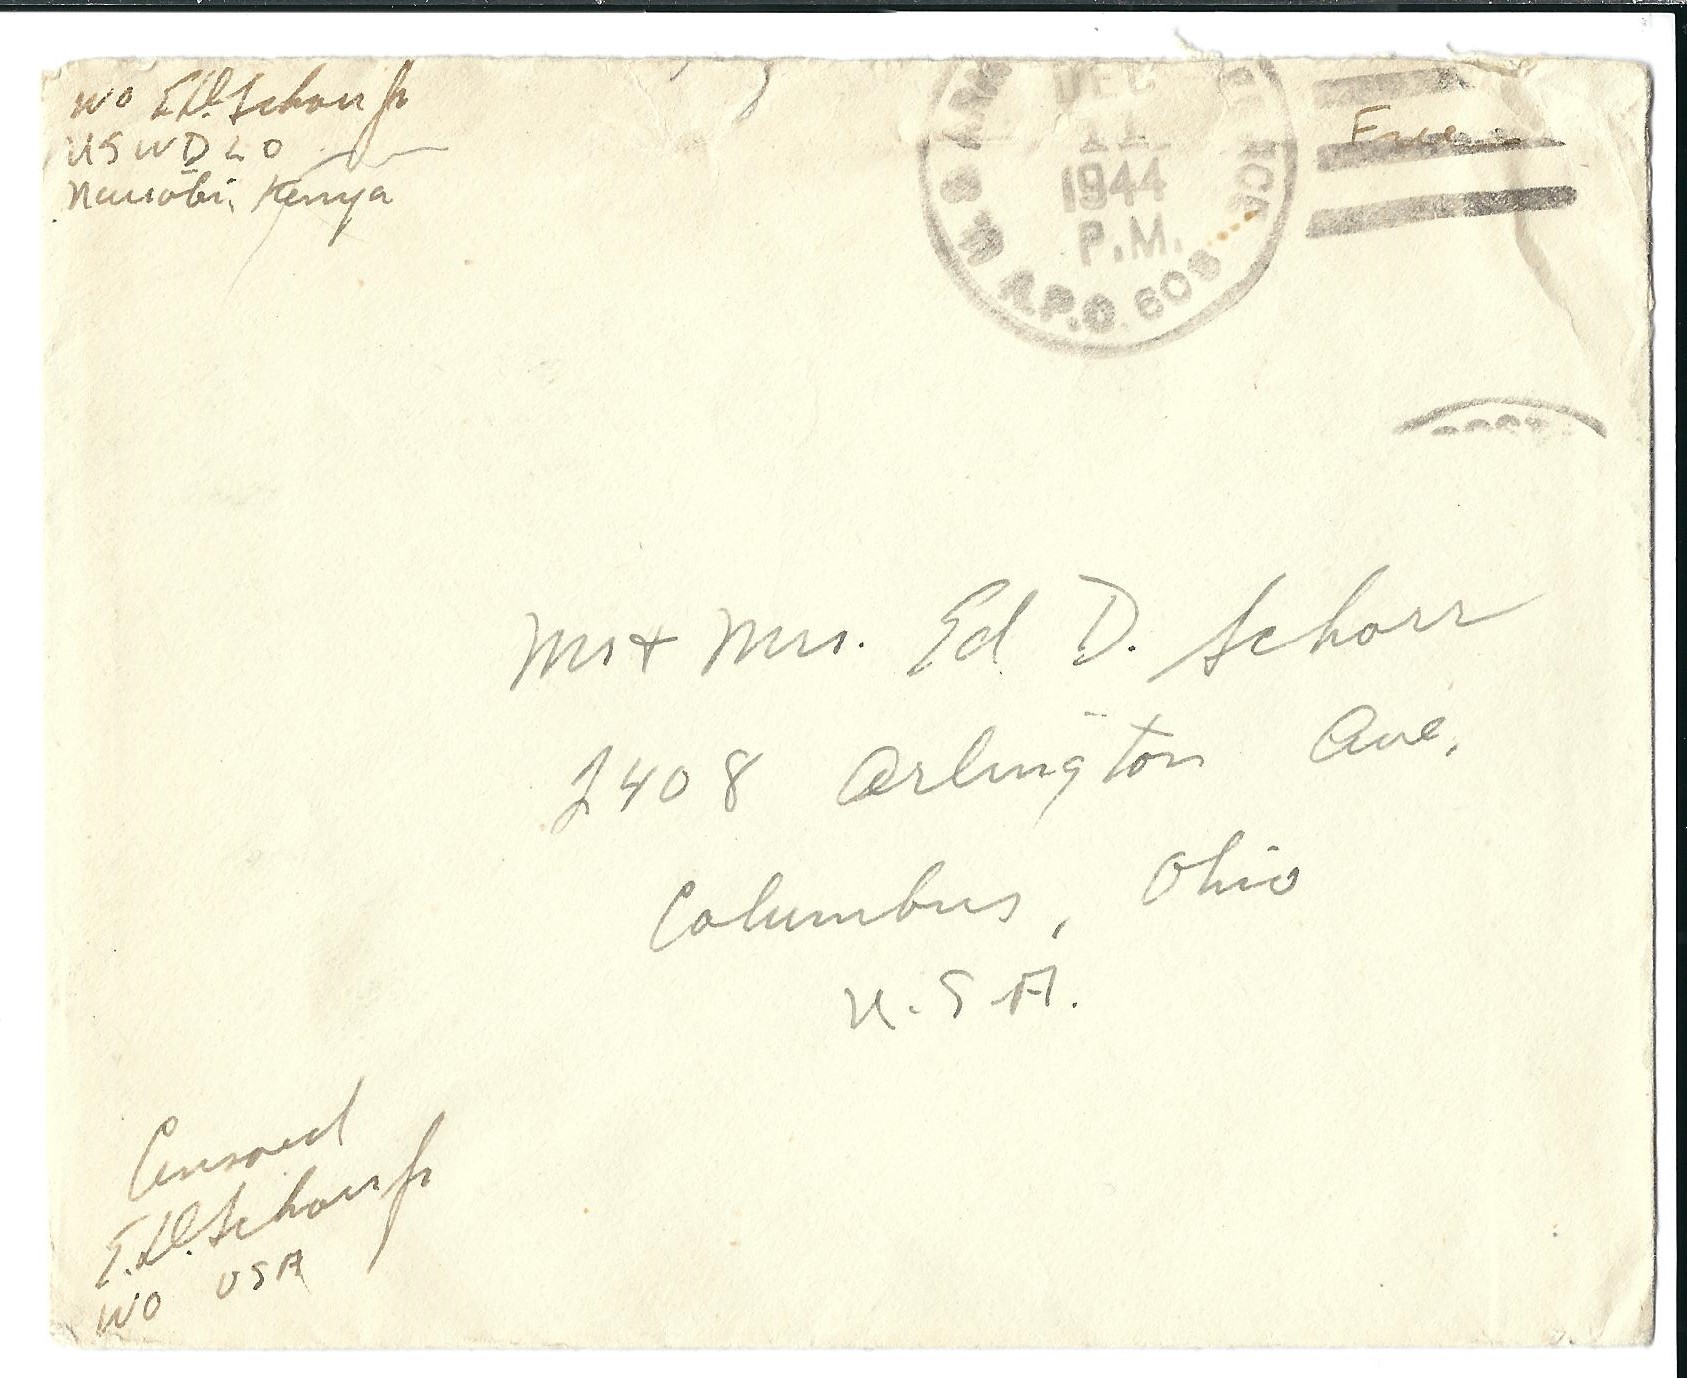 WO E.D. Schorr Jr
USWDLO
Nairobi, Kenya
Free
DEC
11
1944
P.M.
U.S. ARMY
A.P.O. 608
Mr + Mrs. Ed D. Schorr
2408 Arlington Ave.
Columbus, Ohio
U.S.A.
Censored
E.D. Schorr Jr
WO USA